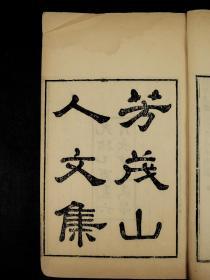 芳茂山
人文集